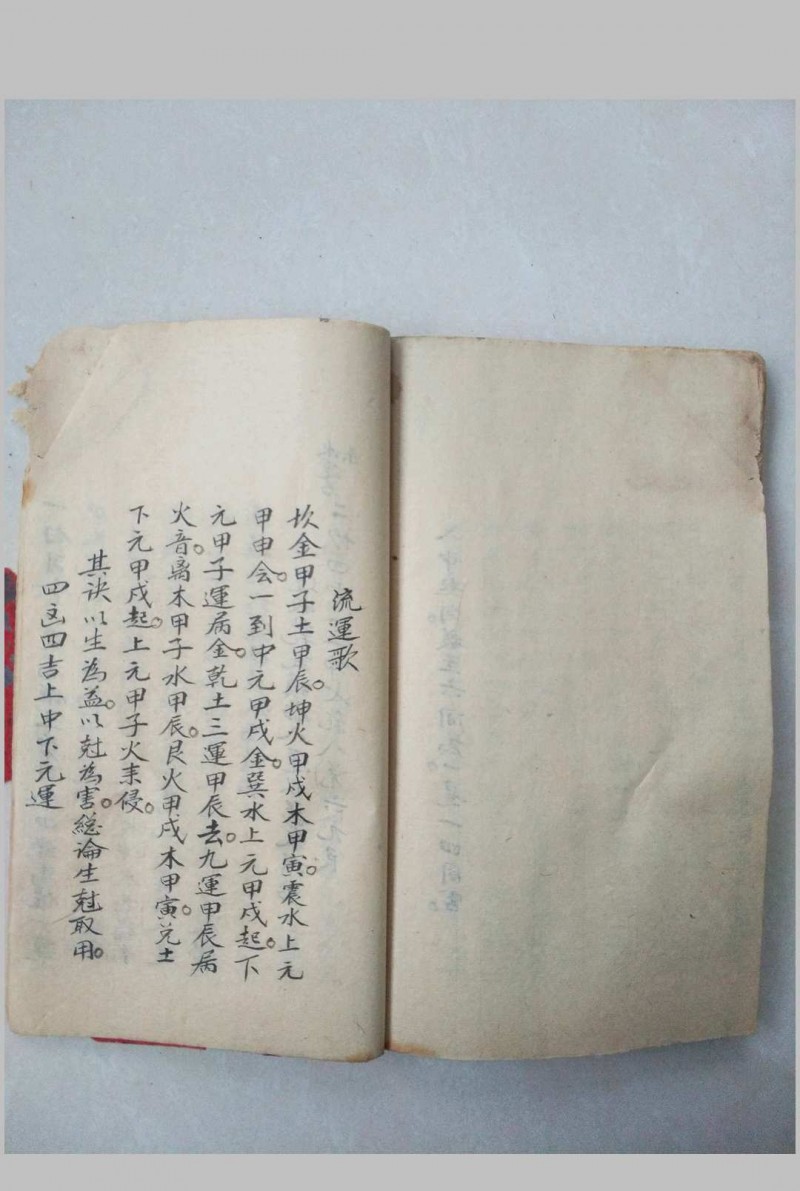 流運歌
坎金甲子土甲辰。坤火甲戌木甲寅。震水上元
甲申会。一到中元甲戌金。巽水上元甲戌起。下
元甲子運病金。乾土三運甲辰去。九運甲辰病
火音。离木甲子水甲辰。艮火甲戌木甲寅。兑土
下元甲戌起。上元甲子火来侵。
其訣以生為益。以尅為害。總論生尅取用。
四凶四吉上中下元運